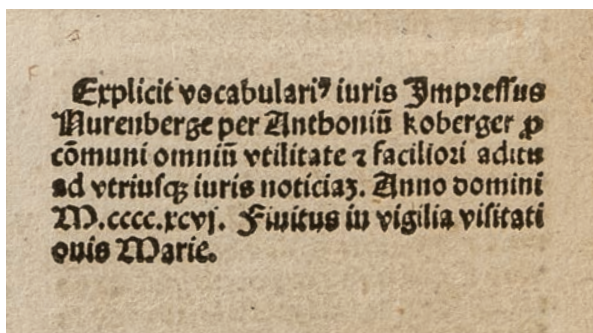 Explicit vocabulariꝰ iuris Impressus
Nurenberge per Anthoniū koberger ꝓ
cōmuni omniū vtilitate ⁊ faciliori aditu
ad vtriusqꝫ iuris noticiaꝫ. Anno domini
M.cccc.xcvj. Finitus in vigilia visitati
onis Marie.